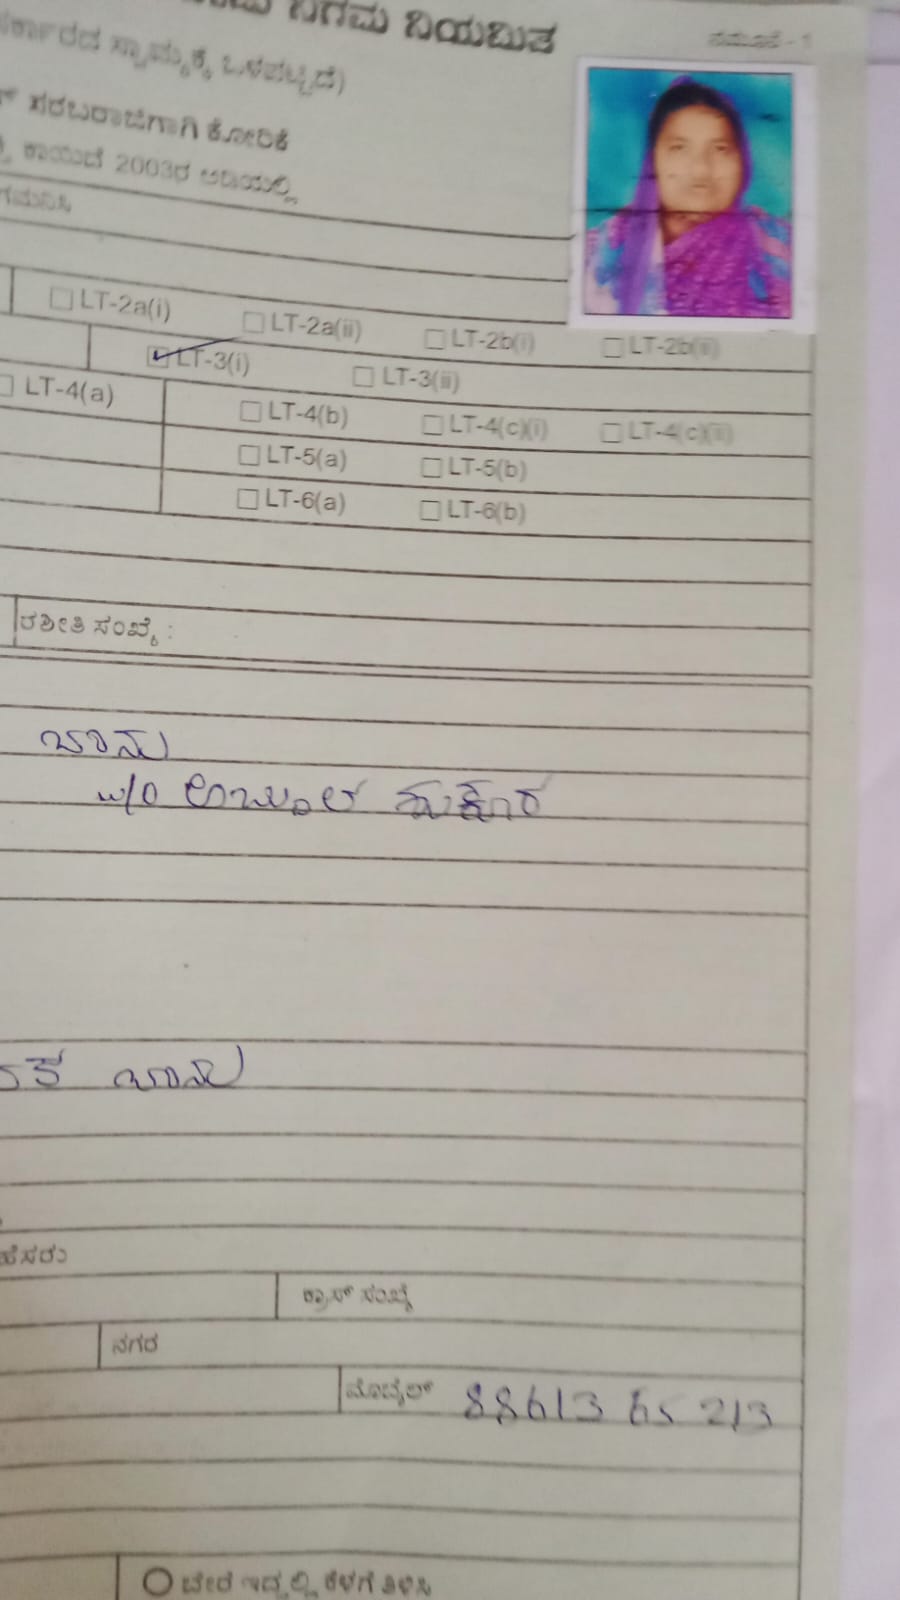 ನಿಗಮ ನಿಯಮಿತ
ನಮೂನೆ - 1
ಸ್ವಾಮ್ಯಕ್ಕೆ ಒಳಪಟ್ಟಿದೆ)
ಸರಬರಾಜಿಗಾಗಿ ಕೋರಿಕೆ
ಕಾಯಿದೆ 2003ರ ಅಡಿಯಲ್ಲಿ
LT-2a(i) LT-2a(ii) LT-2b(i) LT-2b(ii)
LT-3(i) LT-3(ii)
LT-4(a) LT-4(b) LT-4(c)(i) LT-4(c)(ii)
LT-5(a) LT-5(b)
LT-6(a) LT-6(b)
ರಶೀತಿ ಸಂಖ್ಯೆ :
ಬಾನು
w/o ಅಬ್ದುಲ
ಬಾನು
ಹೆಸರು
ಕ್ರಾಸ್ ಸಂಖ್ಯೆ
ನಗರ
ಮೊಬೈಲ್ 88613 65 213
ಬೇರೆ ಇದ್ದಲ್ಲಿ ಕೆಳಗೆ ತಿಳಿಸಿ